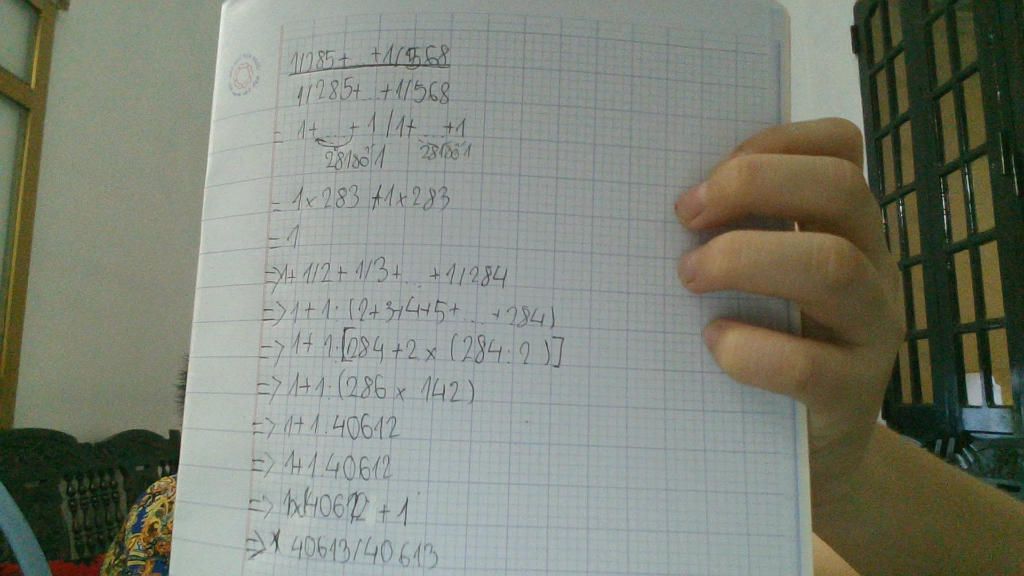 1/285+...+1/568
1/285+...+1/568
= 1+...+1/1+...+1
281 số 1 281 số 1
= 1×283/1×283
= 1
=> 1+1/2+1/3+...+1/284
=> 1+1:(2+3+4+5+...+284)
=> 1+1:[284+2×(284:2)]
=> 1+1:(286×142)
=> 1+1:40612
=> 1+1:40612
=> +1
=> 40613/40613